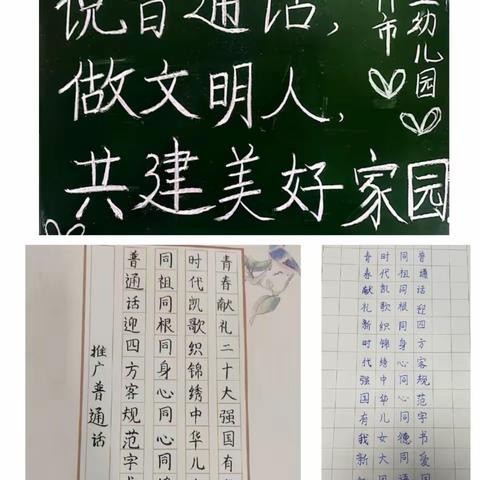 说普通话,
做文明人,
共建美好家园
市
幼儿园
青春献礼二十大强国有
时代凯歌织锦绣中华儿
同祖同根同身心同心同
普通话迎四方客规范字
推广普通话
普通话迎四方客规范字书爱国
同祖同根同身心同心同德同语
时代凯歌织锦绣中华儿女大国
青春献礼新时代强国有我新